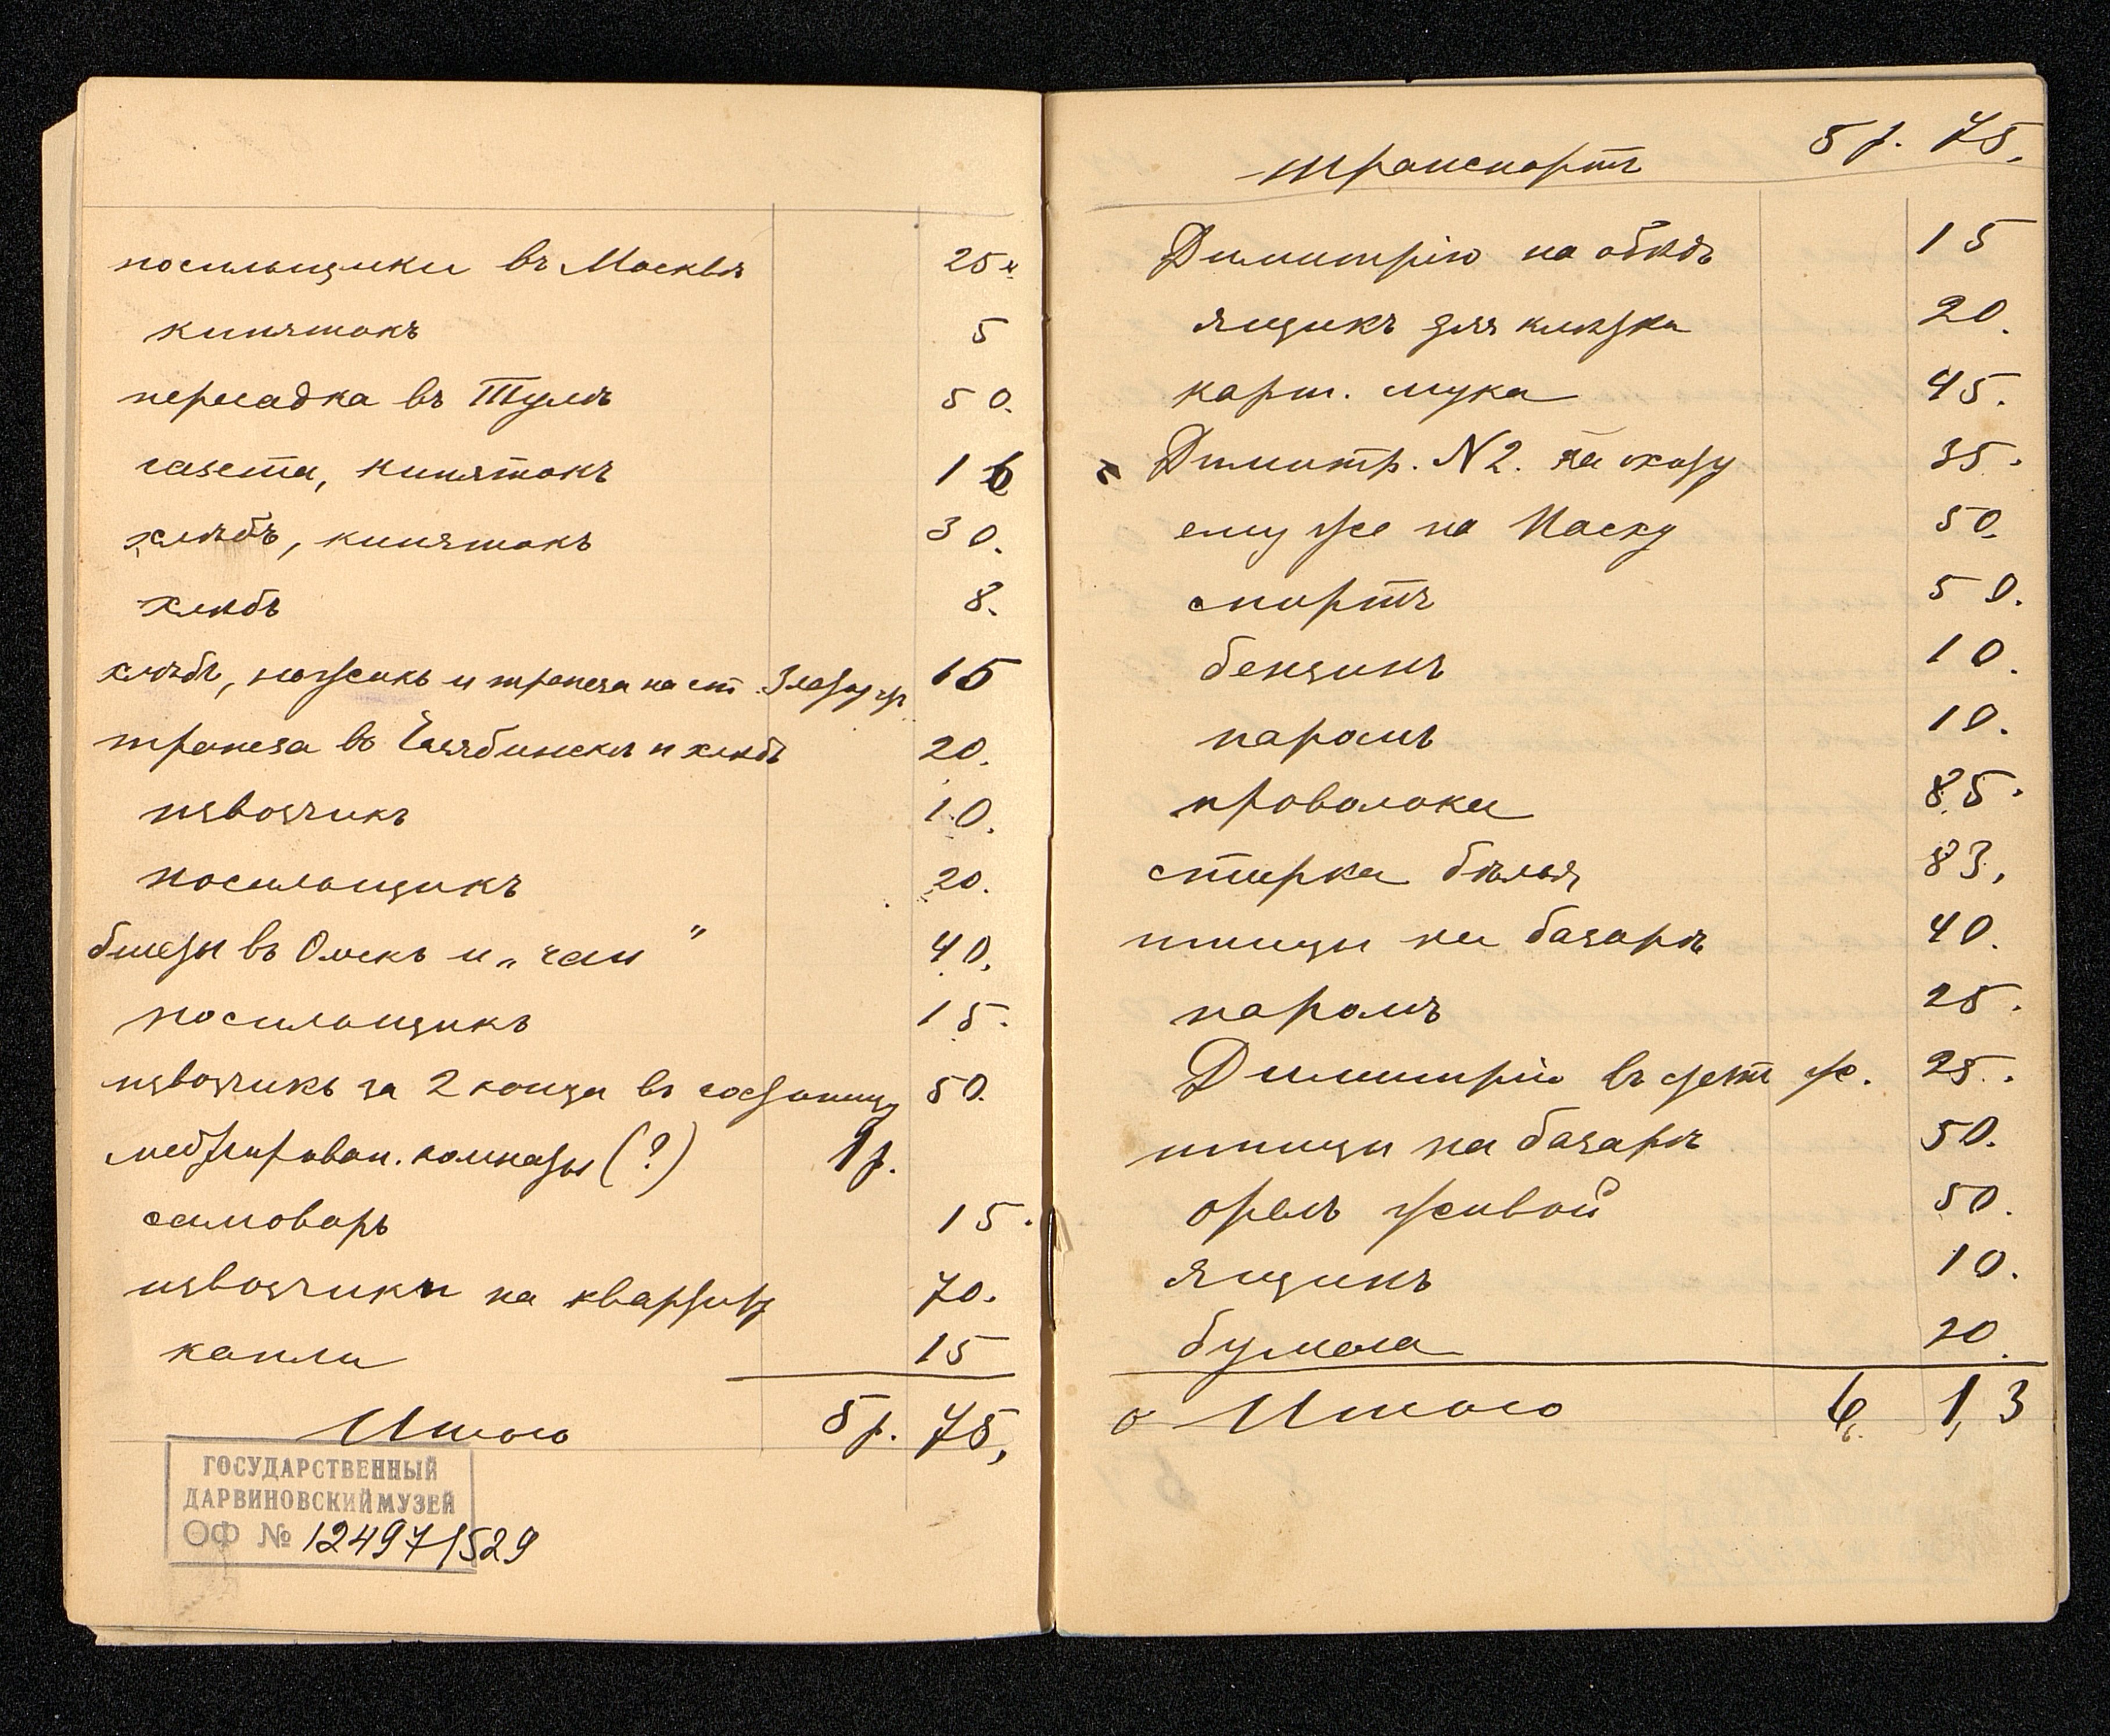 носильщики въ Москвѣ 25 к.
кипятокъ 5
пересадка въ Тулѣ 50.
газета, кипятокъ 16
хлѣбъ, кипятокъ 30.
хлѣбъ 8.
хлѣбъ, ножикъ и трапеза на ст. Златоустъ 15
трапеза въ Челябинскѣ и хлѣбъ 20.
извозчикъ 10.
носильщикъ 20.
билеты въ Омскъ и „чаи" 40.
носильщикъ 15.
извозчикъ за 2 конца въ гостиницу 50.
меблирован. комнаты (?) 1 р.
самоваръ 15.
извозчики на квартиру 70.
капли 15
Итого 5 р. 75.
ГОСУДАРСТВЕННЫЙ
ДАРВИНОВСКИЙ МУЗЕЙ
ОФ № 12497/529
транспортъ 5 р. 75.
Димитрію на обѣдъ 15
ящикъ для 20.
карт. мука 45.
Димитр. N 2. на 35.
ему же на Пасху 50.
спиртъ 50.
бензинъ 10.
паромъ 10.
проволоки 85.
стирка бѣлья 83.
птицы на базарѣ 40.
паромъ 25.
Димитрію въ 25.
птицы на базарѣ 50.
орелъ живой 50.
ящикъ 10.
бумага 20.
Итого 6, 13